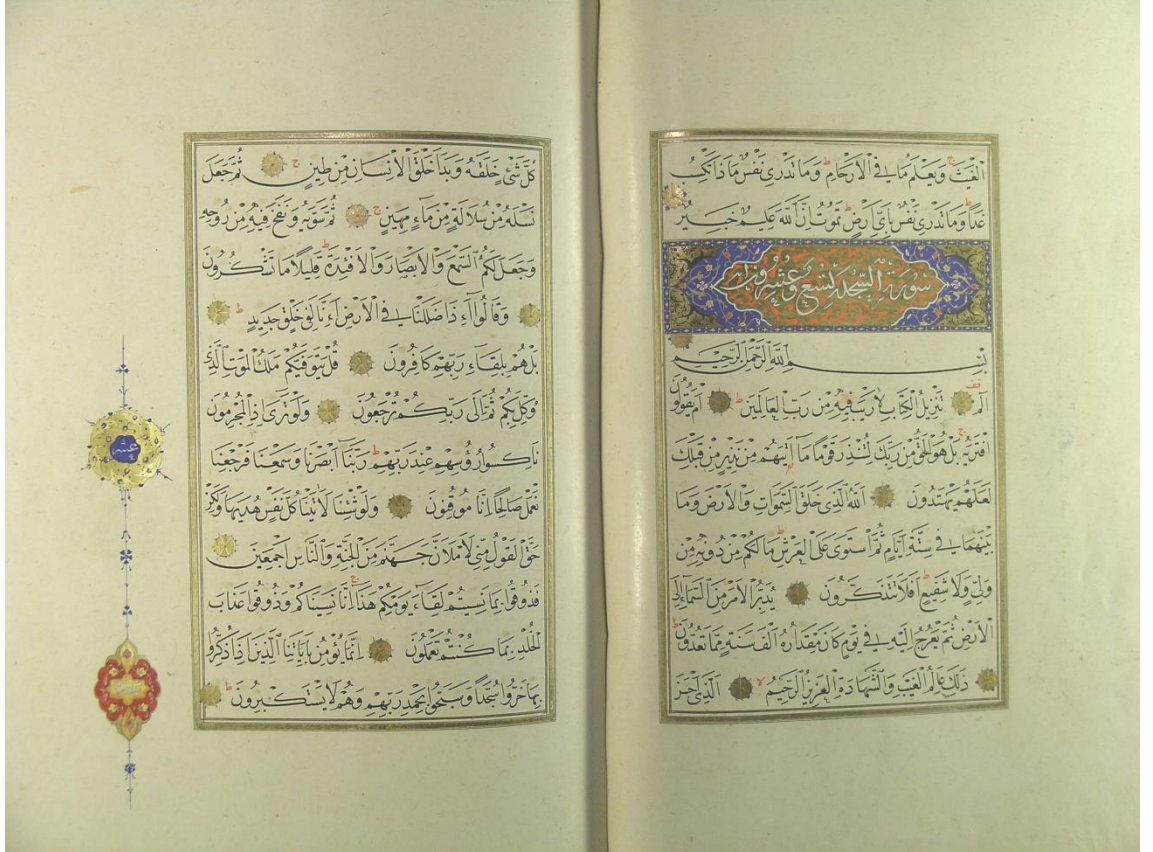 الْغَيْثَ وَيَعْلَمُ مَا فِي الْاَرْحَامِ وَمَا تَدْرِى نَفْسٌ مَاذَا تَكْسِبُ
غَدًا وَمَا تَدْرِى نَفْسٌ بِاَىِّ اَرْضٍ تَمُوتُ اِنَّ اللّٰهَ عَلِيمٌ خَبِيرٌ
سورة السجدة تسع وعشرون اية
بِسْمِ اللّٰهِ الرَّحْمٰنِ الرَّحِيمِ
الٓمٓ تَنْزِيلُ الْكِتَابِ لَا رَيْبَ فِيهِ مِنْ رَبِّ الْعَالَمِينَ اَمْ يَقُولُونَ
افْتَرٰيهُ بَلْ هُوَ الْحَقُّ مِنْ رَبِّكَ لِتُنْذِرَ قَوْمًا مَا اَتٰيهُمْ مِنْ نَذِيرٍ مِنْ قَبْلِكَ
لَعَلَّهُمْ يَهْتَدُونَ اَللّٰهُ الَّذِى خَلَقَ السَّمٰوَاتِ وَالْاَرْضَ وَمَا
بَيْنَهُمَا فِي سِتَّةِ اَيَّامٍ ثُمَّ اسْتَوٰى عَلَى الْعَرْشِ مَا لَكُمْ مِنْ دُونِهِ مِنْ
وَلِىٍّ وَلَا شَفِيعٍ اَفَلَا تَتَذَكَّرُونَ يُدَبِّرُ الْاَمْرَ مِنَ السَّمَاءِ اِلَى
الْاَرْضِ ثُمَّ يَعْرُجُ اِلَيْهِ فِي يَوْمٍ كَانَ مِقْدَارُهُ اَلْفَ سَنَةٍ مِمَّا تَعُدُّونَ
ذٰلِكَ عَالِمُ الْغَيْبِ وَالشَّهَادَةِ الْعَزِيزُ الرَّحِيمُ اَلَّذِى اَحْسَنَ
كُلَّ شَىْءٍ خَلَقَهُ وَبَدَاَ خَلْقَ الْاِنْسَانِ مِنْ طِينٍ ثُمَّ جَعَلَ
نَسْلَهُ مِنْ سُلَالَةٍ مِنْ مَاءٍ مَهِينٍ ثُمَّ سَوّٰيهُ وَنَفَخَ فِيهِ مِنْ رُوحِهِ
وَجَعَلَ لَكُمُ السَّمْعَ وَالْاَبْصَارَ وَالْاَفْئِدَةَ قَلِيلًا مَا تَشْكُرُونَ
وَقَالُوا ءَاِذَا ضَلَلْنَا فِي الْاَرْضِ ءَاِنَّا لَفِي خَلْقٍ جَدِيدٍ
بَلْ هُمْ بِلِقَاءِ رَبِّهِمْ كَافِرُونَ قُلْ يَتَوَفّٰيكُمْ مَلَكُ الْمَوْتِ الَّذِى
وُكِّلَ بِكُمْ ثُمَّ اِلٰى رَبِّكُمْ تُرْجَعُونَ وَلَوْ تَرٰى اِذِ الْمُجْرِمُونَ
نَاكِسُوا رُؤُسِهِمْ عِنْدَ رَبِّهِمْ رَبَّنَا اَبْصَرْنَا وَسَمِعْنَا فَارْجِعْنَا
نَعْمَلْ صَالِحًا اِنَّا مُوقِنُونَ وَلَوْ شِئْنَا لَاٰتَيْنَا كُلَّ نَفْسٍ هُدٰيهَا وَلٰكِنْ
حَقَّ الْقَوْلُ مِنِّى لَاَمْلَاَنَّ جَهَنَّمَ مِنَ الْجِنَّةِ وَالنَّاسِ اَجْمَعِينَ
فَذُوقُوا بِمَا نَسِيتُمْ لِقَاءَ يَوْمِكُمْ هٰذَا اِنَّا نَسِينَاكُمْ وَذُوقُوا عَذَابَ
الْخُلْدِ بِمَا كُنْتُمْ تَعْمَلُونَ اِنَّمَا يُؤْمِنُ بِاٰيَاتِنَا الَّذِينَ اِذَا ذُكِّرُوا
بِهَا خَرُّوا سُجَّدًا وَسَبَّحُوا بِحَمْدِ رَبِّهِمْ وَهُمْ لَا يَسْتَكْبِرُونَ
عشر